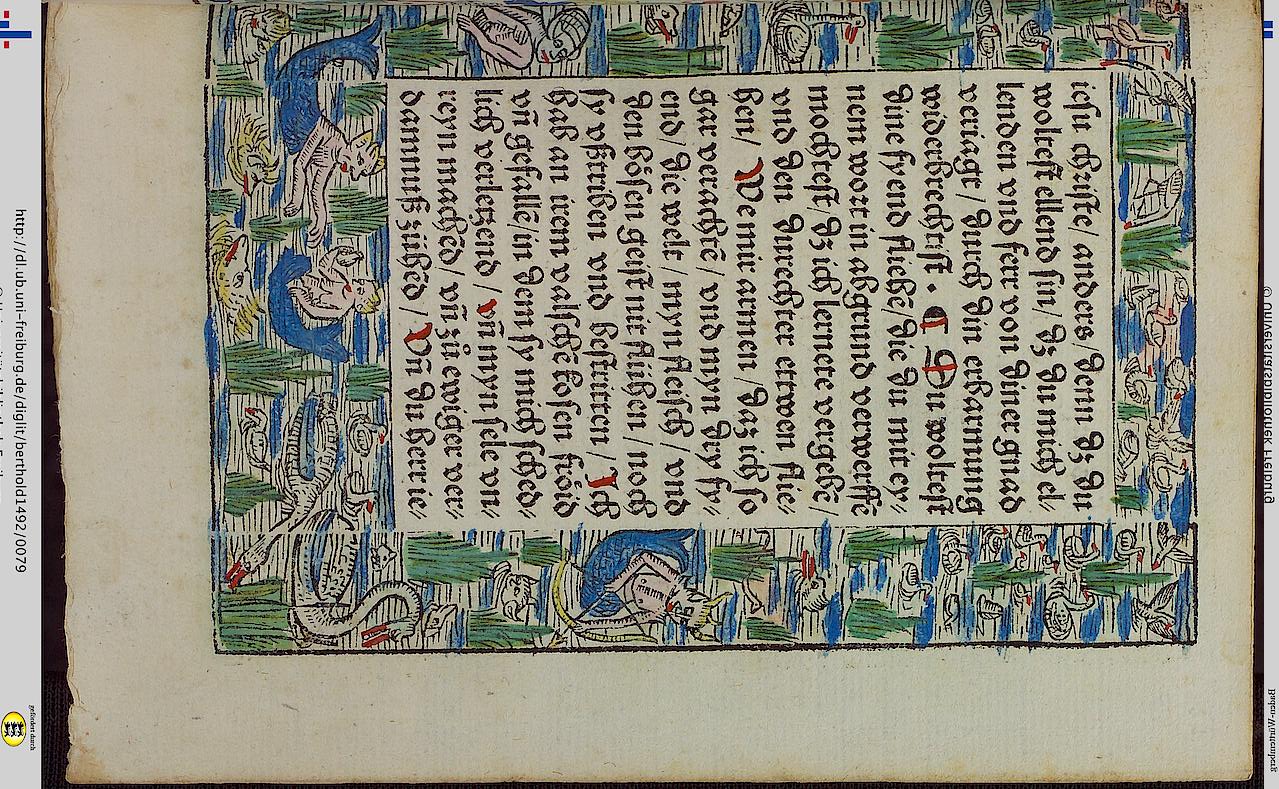 iesu christe / anders / denn dz du
woltest ellend sin / dz du mich el-
lenden vnd ferr von diner gnad
veriagt / durch din erbarmung
widerbrechtist . ¶ Du woltest
dine fyend fliehē / die du mit ey-
nem wort in abgrund verwerffē
mochtest / dz ich lernete vergebē /
vnd den durechter ettwen flie-
hen / We mir armen / daz ich so
gar verachtē / vnd myn dry fy-
end / die welt / myn fleisch / vnd
den bösen geist nit flühen / noch
sy vßtriben vnd bestritten / Ich
hab an irem valschē kosen fröid
vñ gefallē / in dem sy mich sched-
lich verletzend / vñ myn sele vn-
reyn machēd / vñ zů ewiger ver-
damnuß zühēd / Vñ du herr ie-
http://dl.ub.uni-freiburg.de/diglit/berthold1492/0079
gefördert durch
Baden-Württemberg